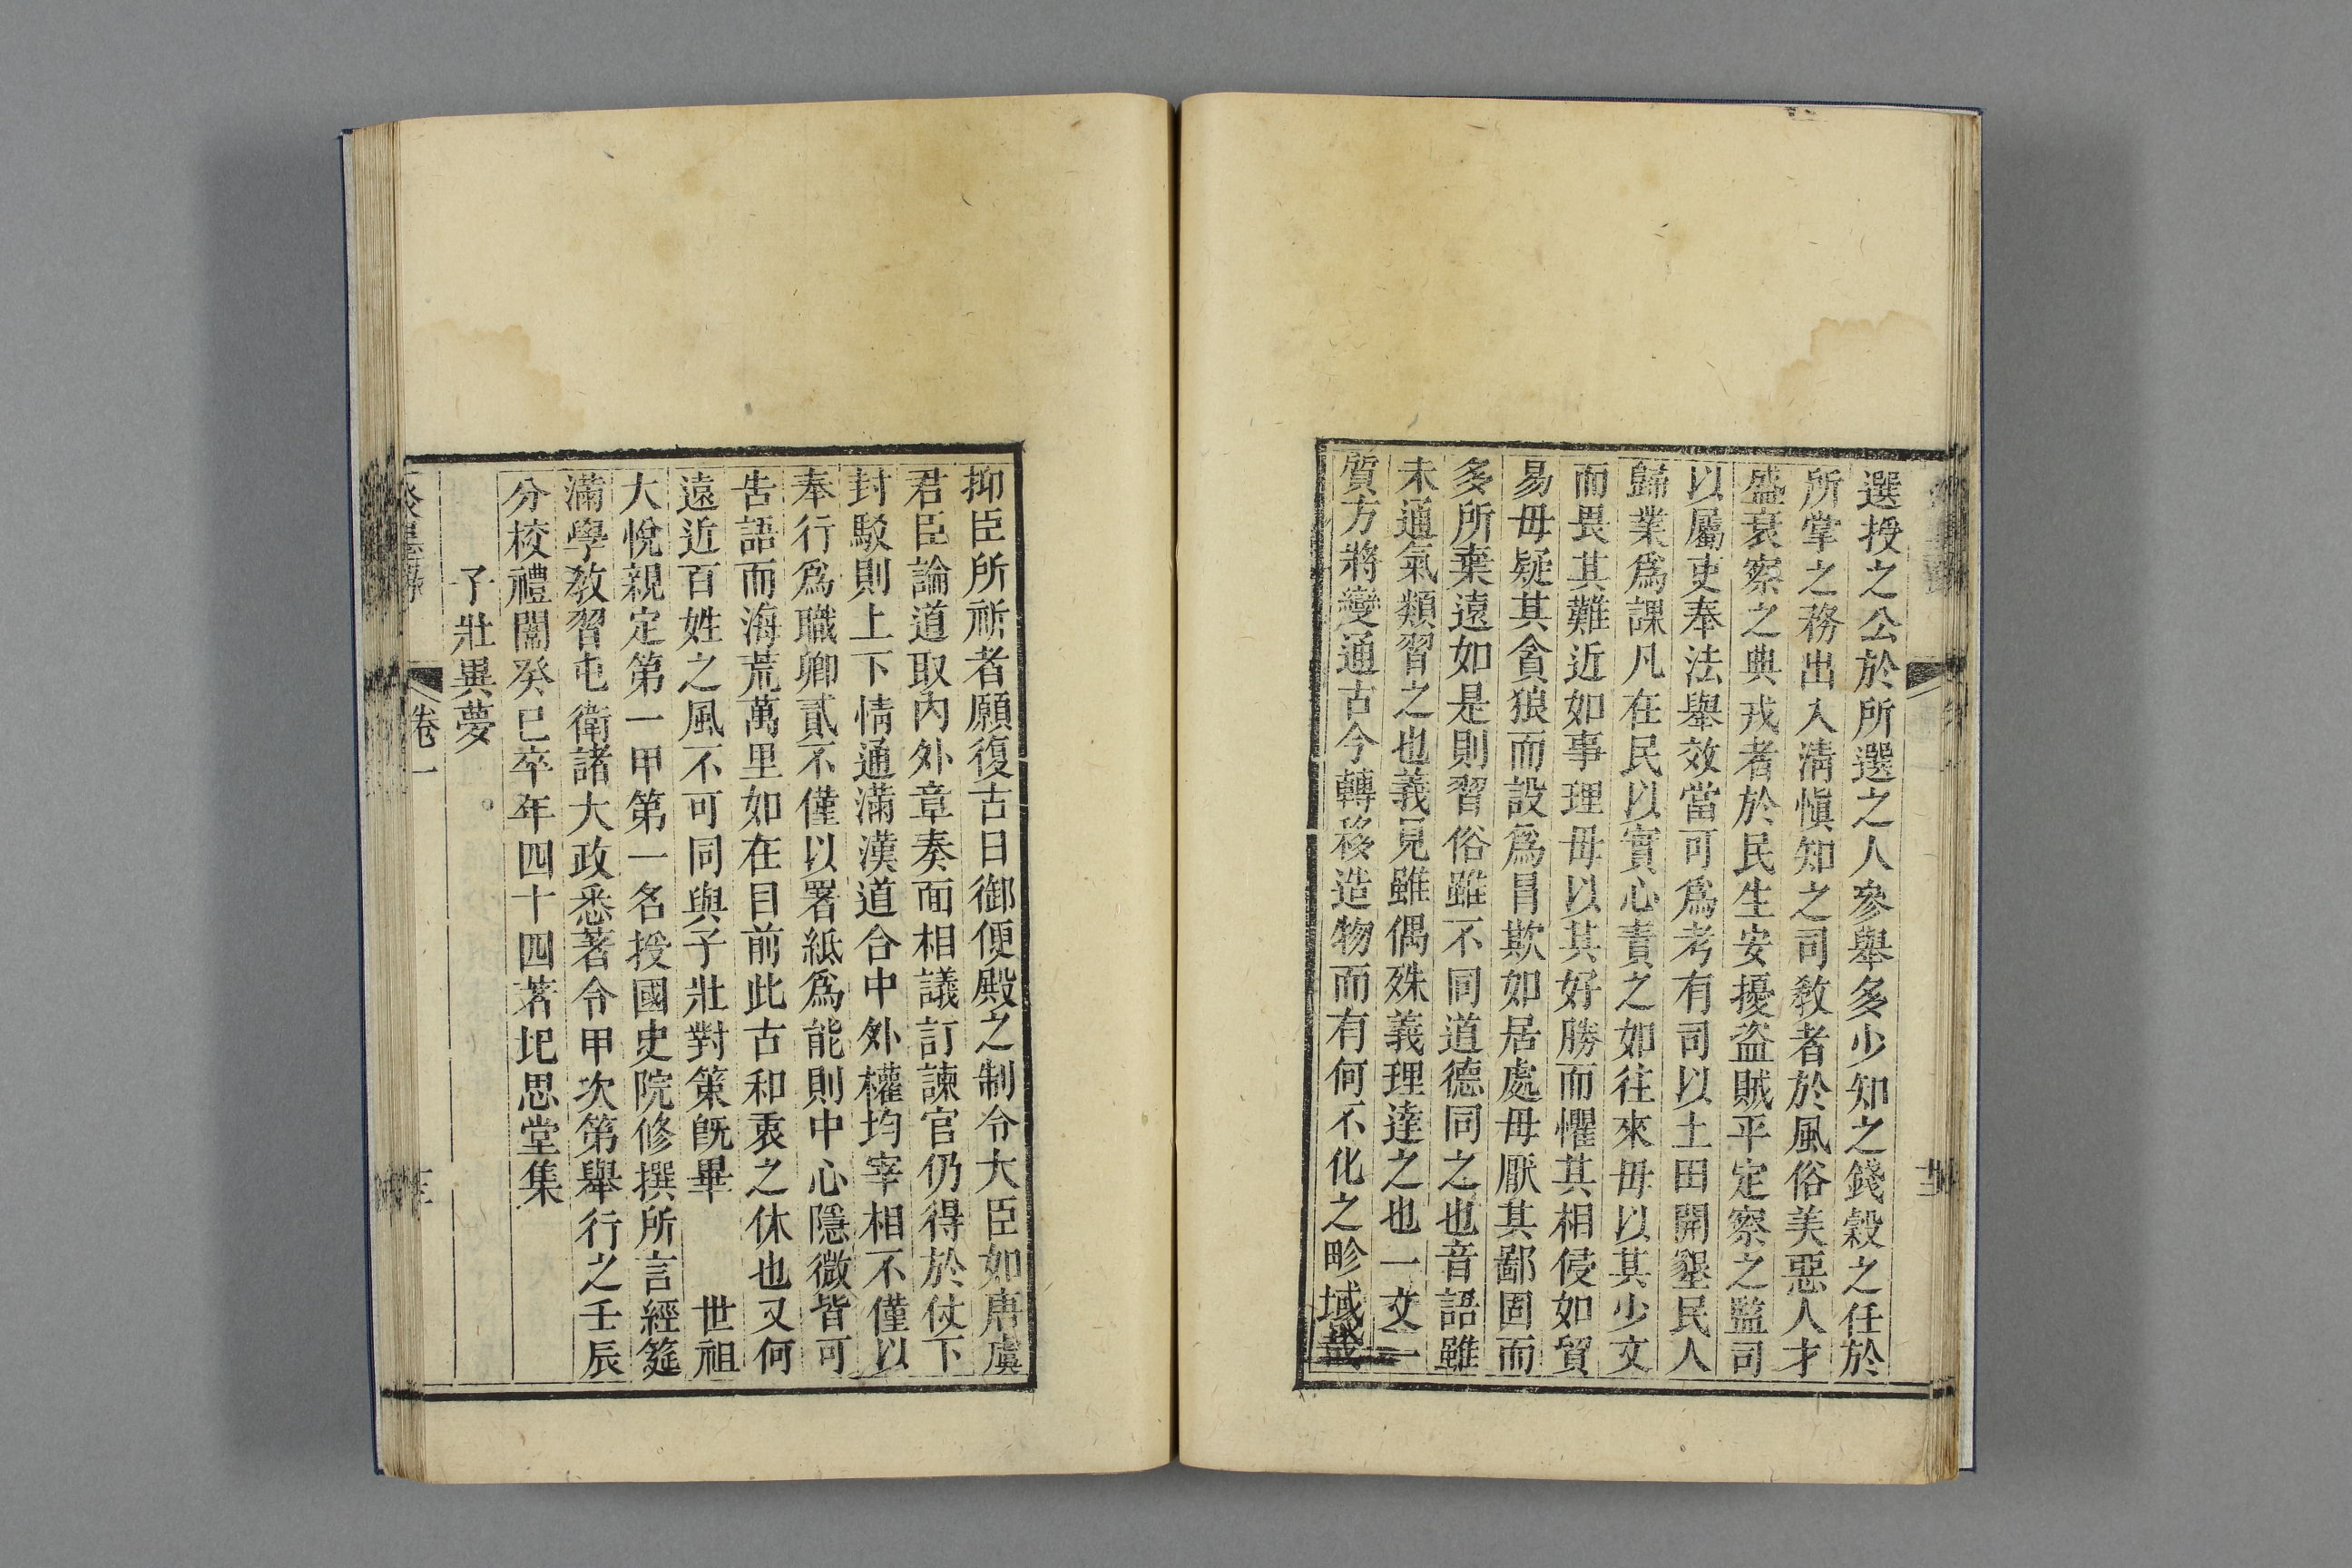 選授之公於所選之人參舉多少知之錢穀之任於
所掌之務出入淸愼知之司敎者於風俗美惡人才
盛衰察之典戎者於民生安擾盜賊平定察之監司
以屬吏奉法舉效當可爲考有司以土田開墾民人
歸業爲課凡在民以實心責之如往來毋以其少文
而畏其難近如事理毋以其好勝而懼其相侵如貿
易毋疑其貪狼而設爲昌欺如居處毋厭其鄙固而
多所棄遠如是則習俗雖不同道德同之也音語雖
未通氣類習之也義見雖偶殊義理達之也一文一
質方將變通古今轉移造物而有何不化之畛域哉
抑臣所祈者願復古日御便殿之制令大臣如唐虞
君臣論道取內外章奏面相議訂諫官仍得於仗下
封駁則上下情通滿漢道合中外權均宰相不僅以
奉行爲職卿貳不僅以署紙爲能則中心隱微皆可
告語而海荒萬里如在目前此古和衷之休也又何
遠近百姓之風不可同與子壯對策旣畢 世祖
大悅親定第一甲第一名授國史院修撰所言經筵
滿學敎習屯衛諸大政悉著令甲次第舉行之壬辰
分校禮闈癸巳卒年四十四著圯思堂集
子壯異夢
卷一